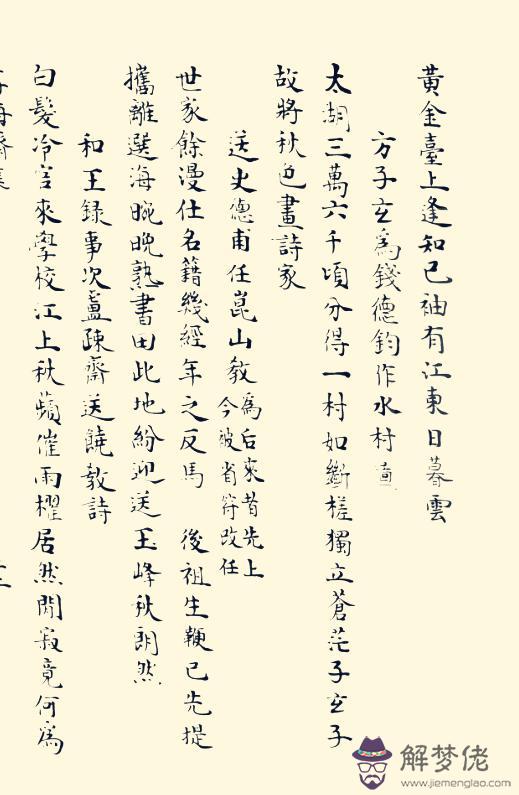 黃金臺上逢知己袖有江東日暮雲
方子玄為錢德鈞作水村
太湖三萬六千頃分得一村如斷槎獨立蒼茫子玄子
故將秋色畫詩家
送史德甫任崑山教為后來者先上
今被省符改任
世家餘漫仕名籍幾經年之反馬 後祖生鞭已先提
攜離選海晼晚熟書田此地紛迎送玉峰秋朗然
和王録事次盧疎齋送饒教詩
白髮冷官來學校江上秋蘋催雨櫂居然閒寂竟何為
解梦佬
www.jiemenglao.com